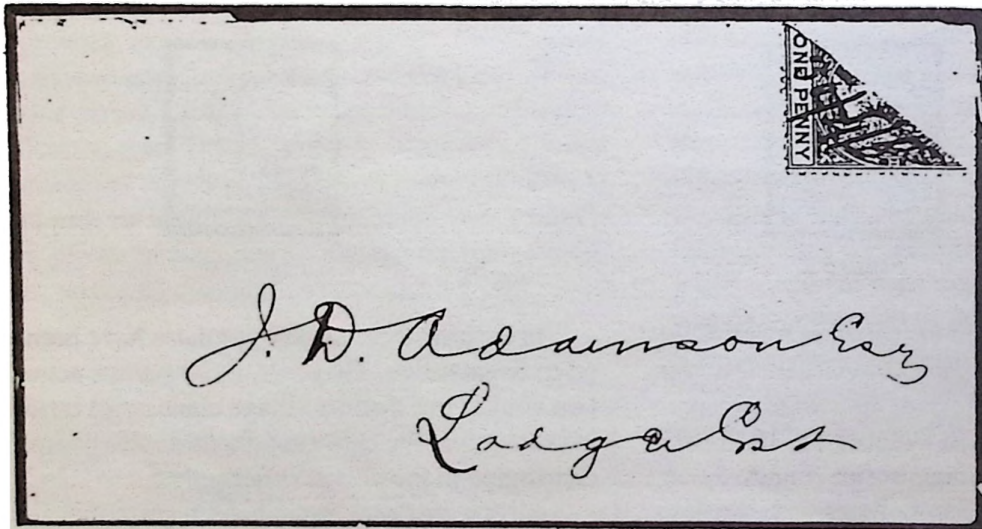 ONE PENNY
J. D. Adamson Esq
Lodge Est